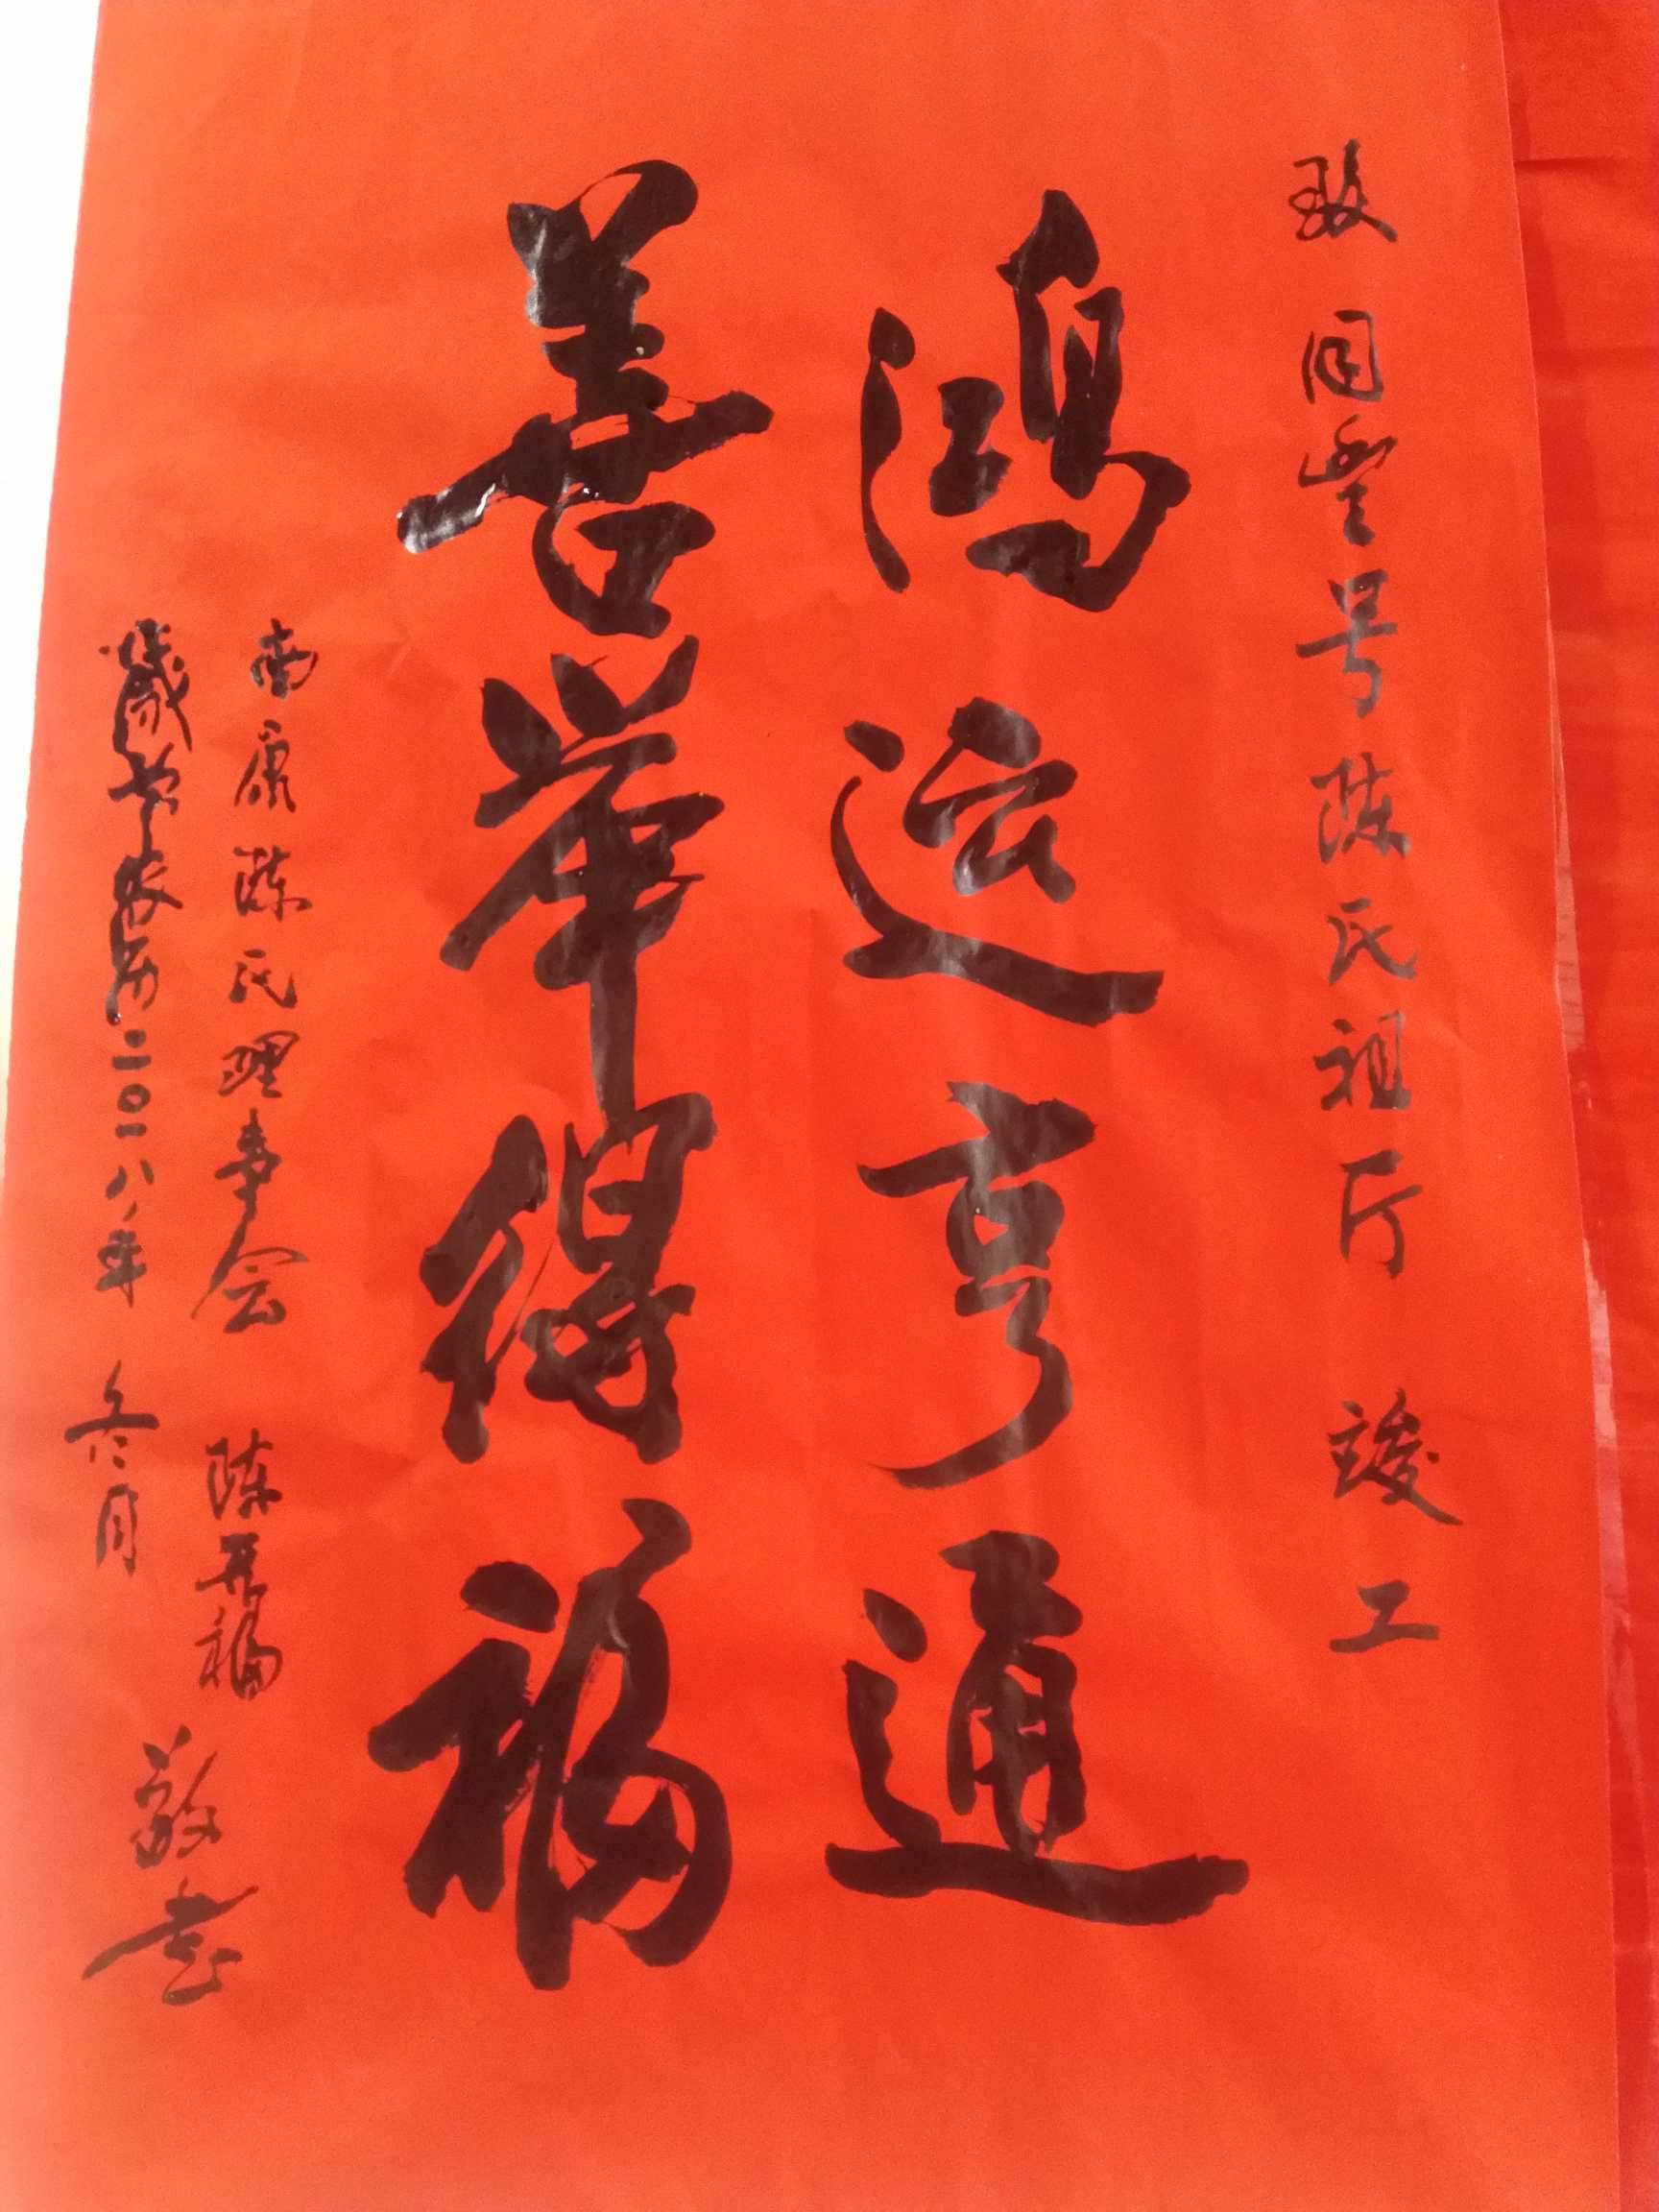 致 同丰号陈氏祖厅 竣工
鸿运亨通
善举得福
南康陈氏理事会 陈开福 敬书
岁 二〇一八年 冬月